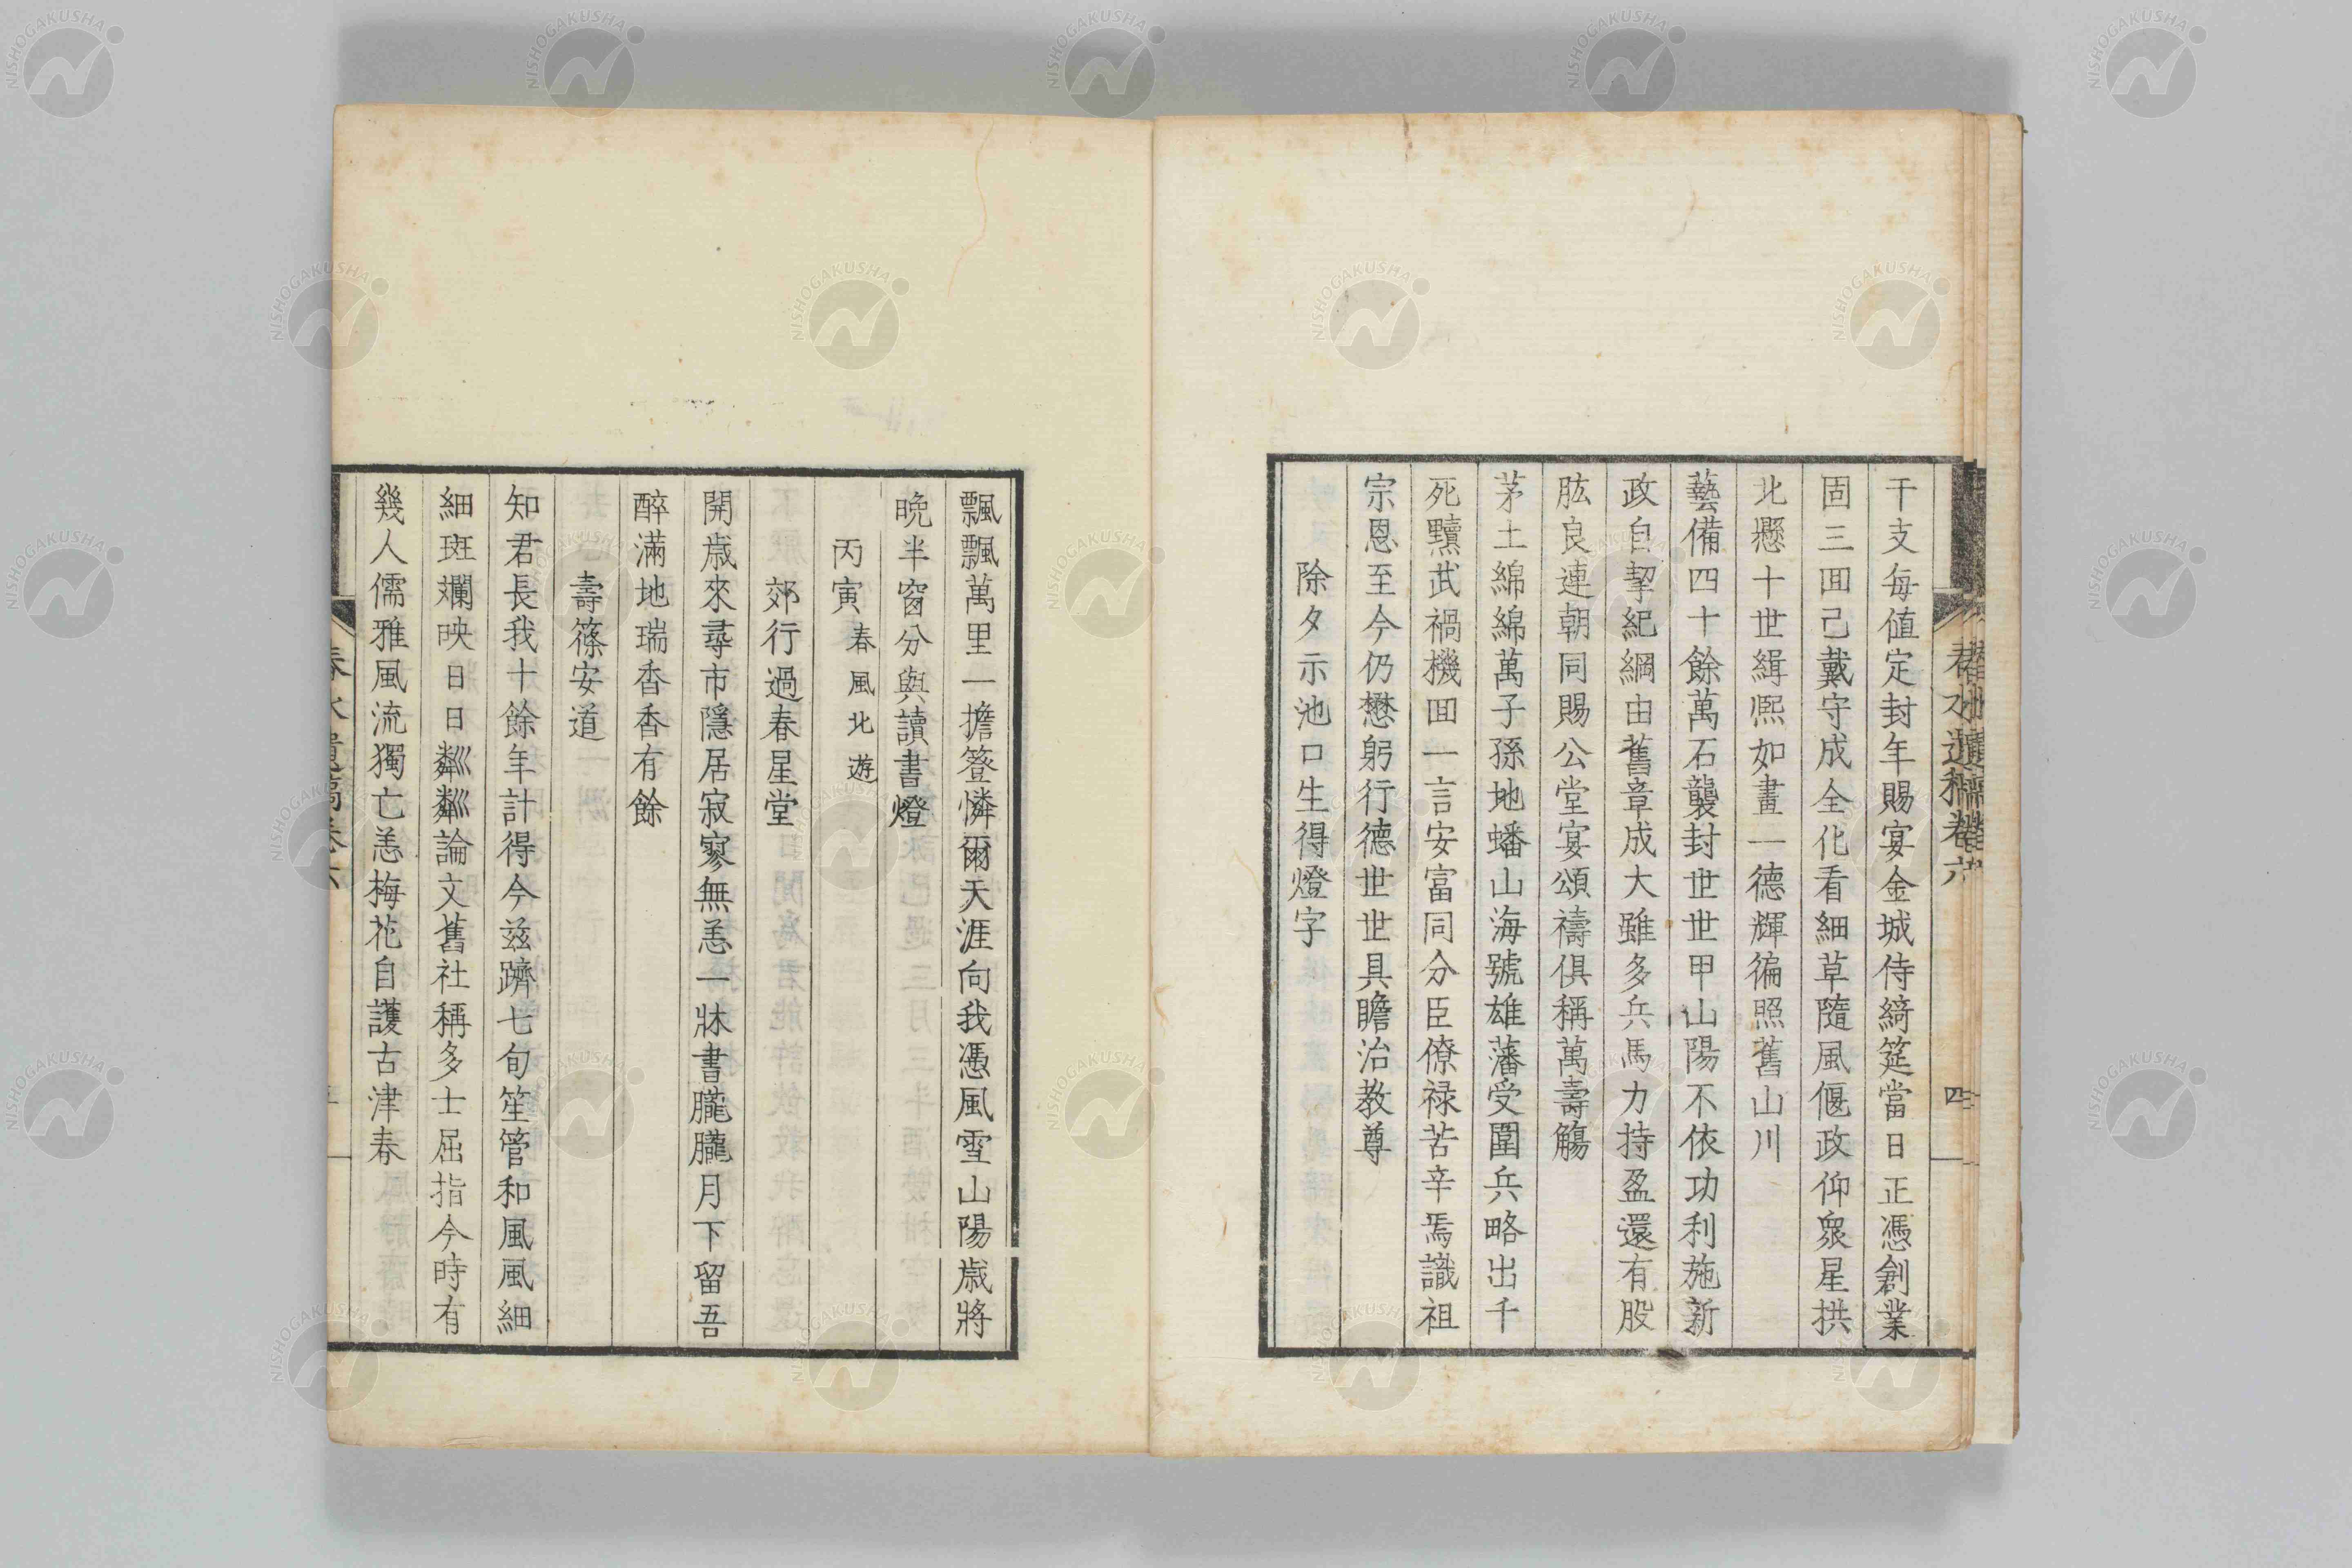 春水遺稿卷六
四
干支每值定封年賜宴金城侍綺筵當日正憑創業
固三囬己戴守成全化看細草隨風偃政仰衆星拱
北懸十世緝熙如畫一德輝徧照舊山川
藝備四十餘萬石襲封世世甲山陽不依功利施新
政自挈紀綱由舊章成大雖多兵馬力持盈還有股
肱良連朝同賜公堂宴頌禱俱稱萬壽觴
茅土綿綿萬子孫地蟠山海號雄藩受圍兵略出千
死黷武禍機囬一言安富同分臣僚禄苦辛焉識祖
宗恩至今仍懋躬行德世世具瞻治教尊
除夕示池口生得燈字
飄飄萬里一擔簦憐爾天涯向我憑風雪山陽歳將
晩半窗分與讀書燈
丙寅春風北遊
郊行過春星堂
開歳來尋市隱居寂寥無恙一牀書朧朧月下留吾
醉滿地瑞香香有餘
壽篠安道
知君長我十餘年計得今兹躋七旬笙管和風風細
細斑斕映日日粼粼論文舊社稱多士屈指今時有
幾人儒雅風流獨亡恙梅花自護古津春
春水遺稿卷六
NISHOGAKUSHA